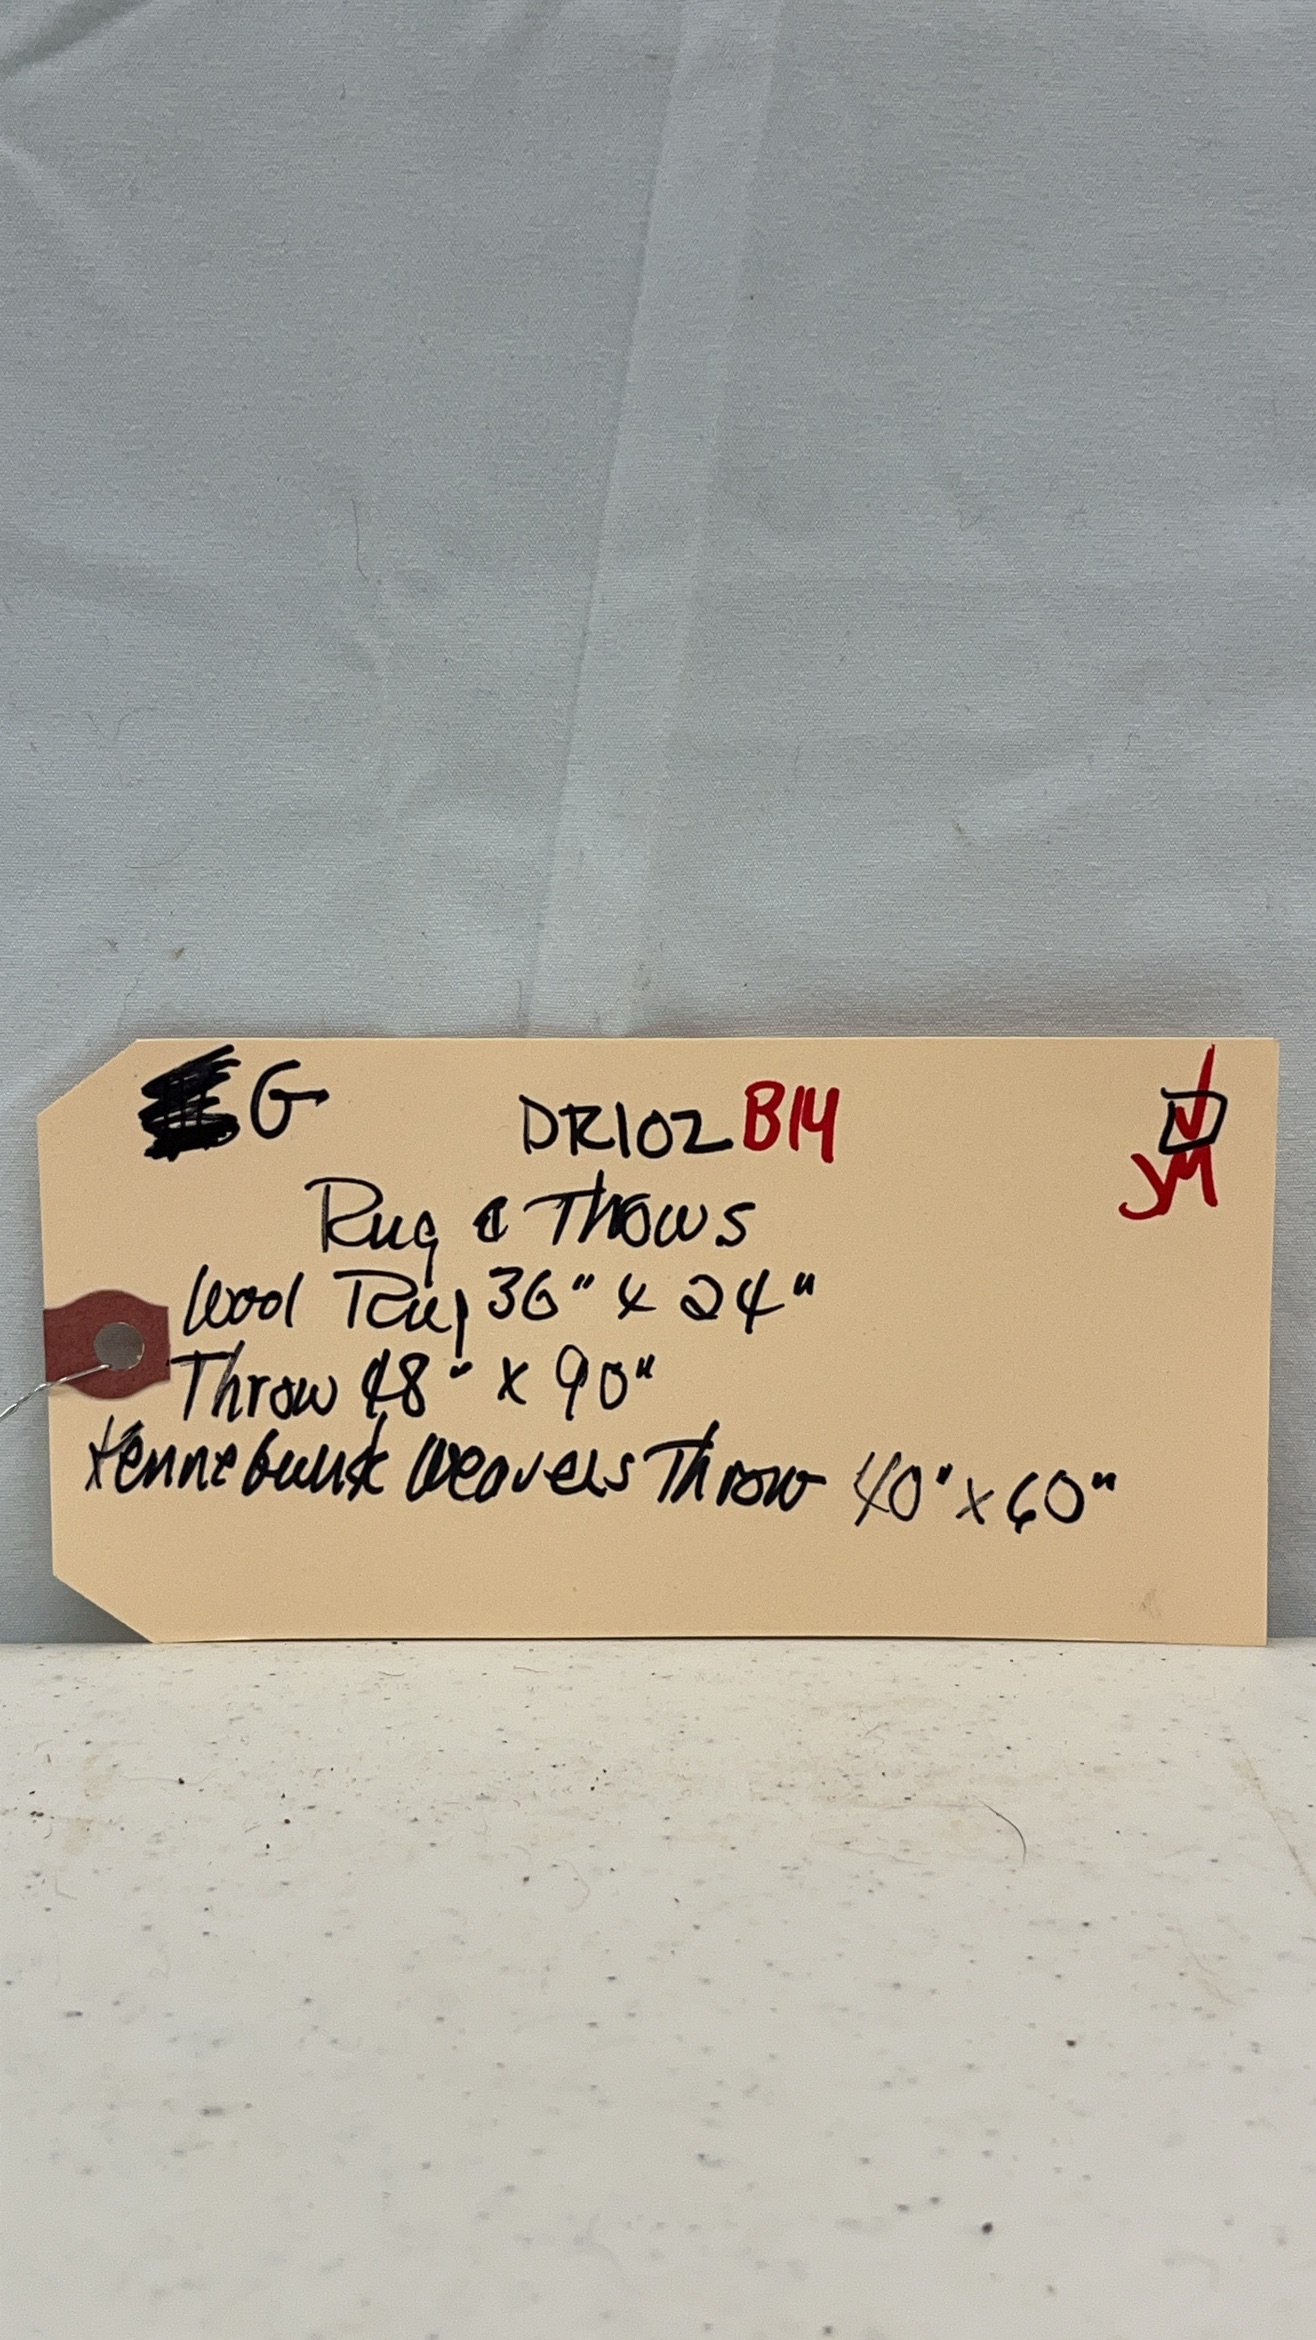 G DR102 B14
JM
Rug & Thows
Wool Rug 36" x 24"
Throw 48" x 90"
Kennebunk Weavers Throw 40" x 60"